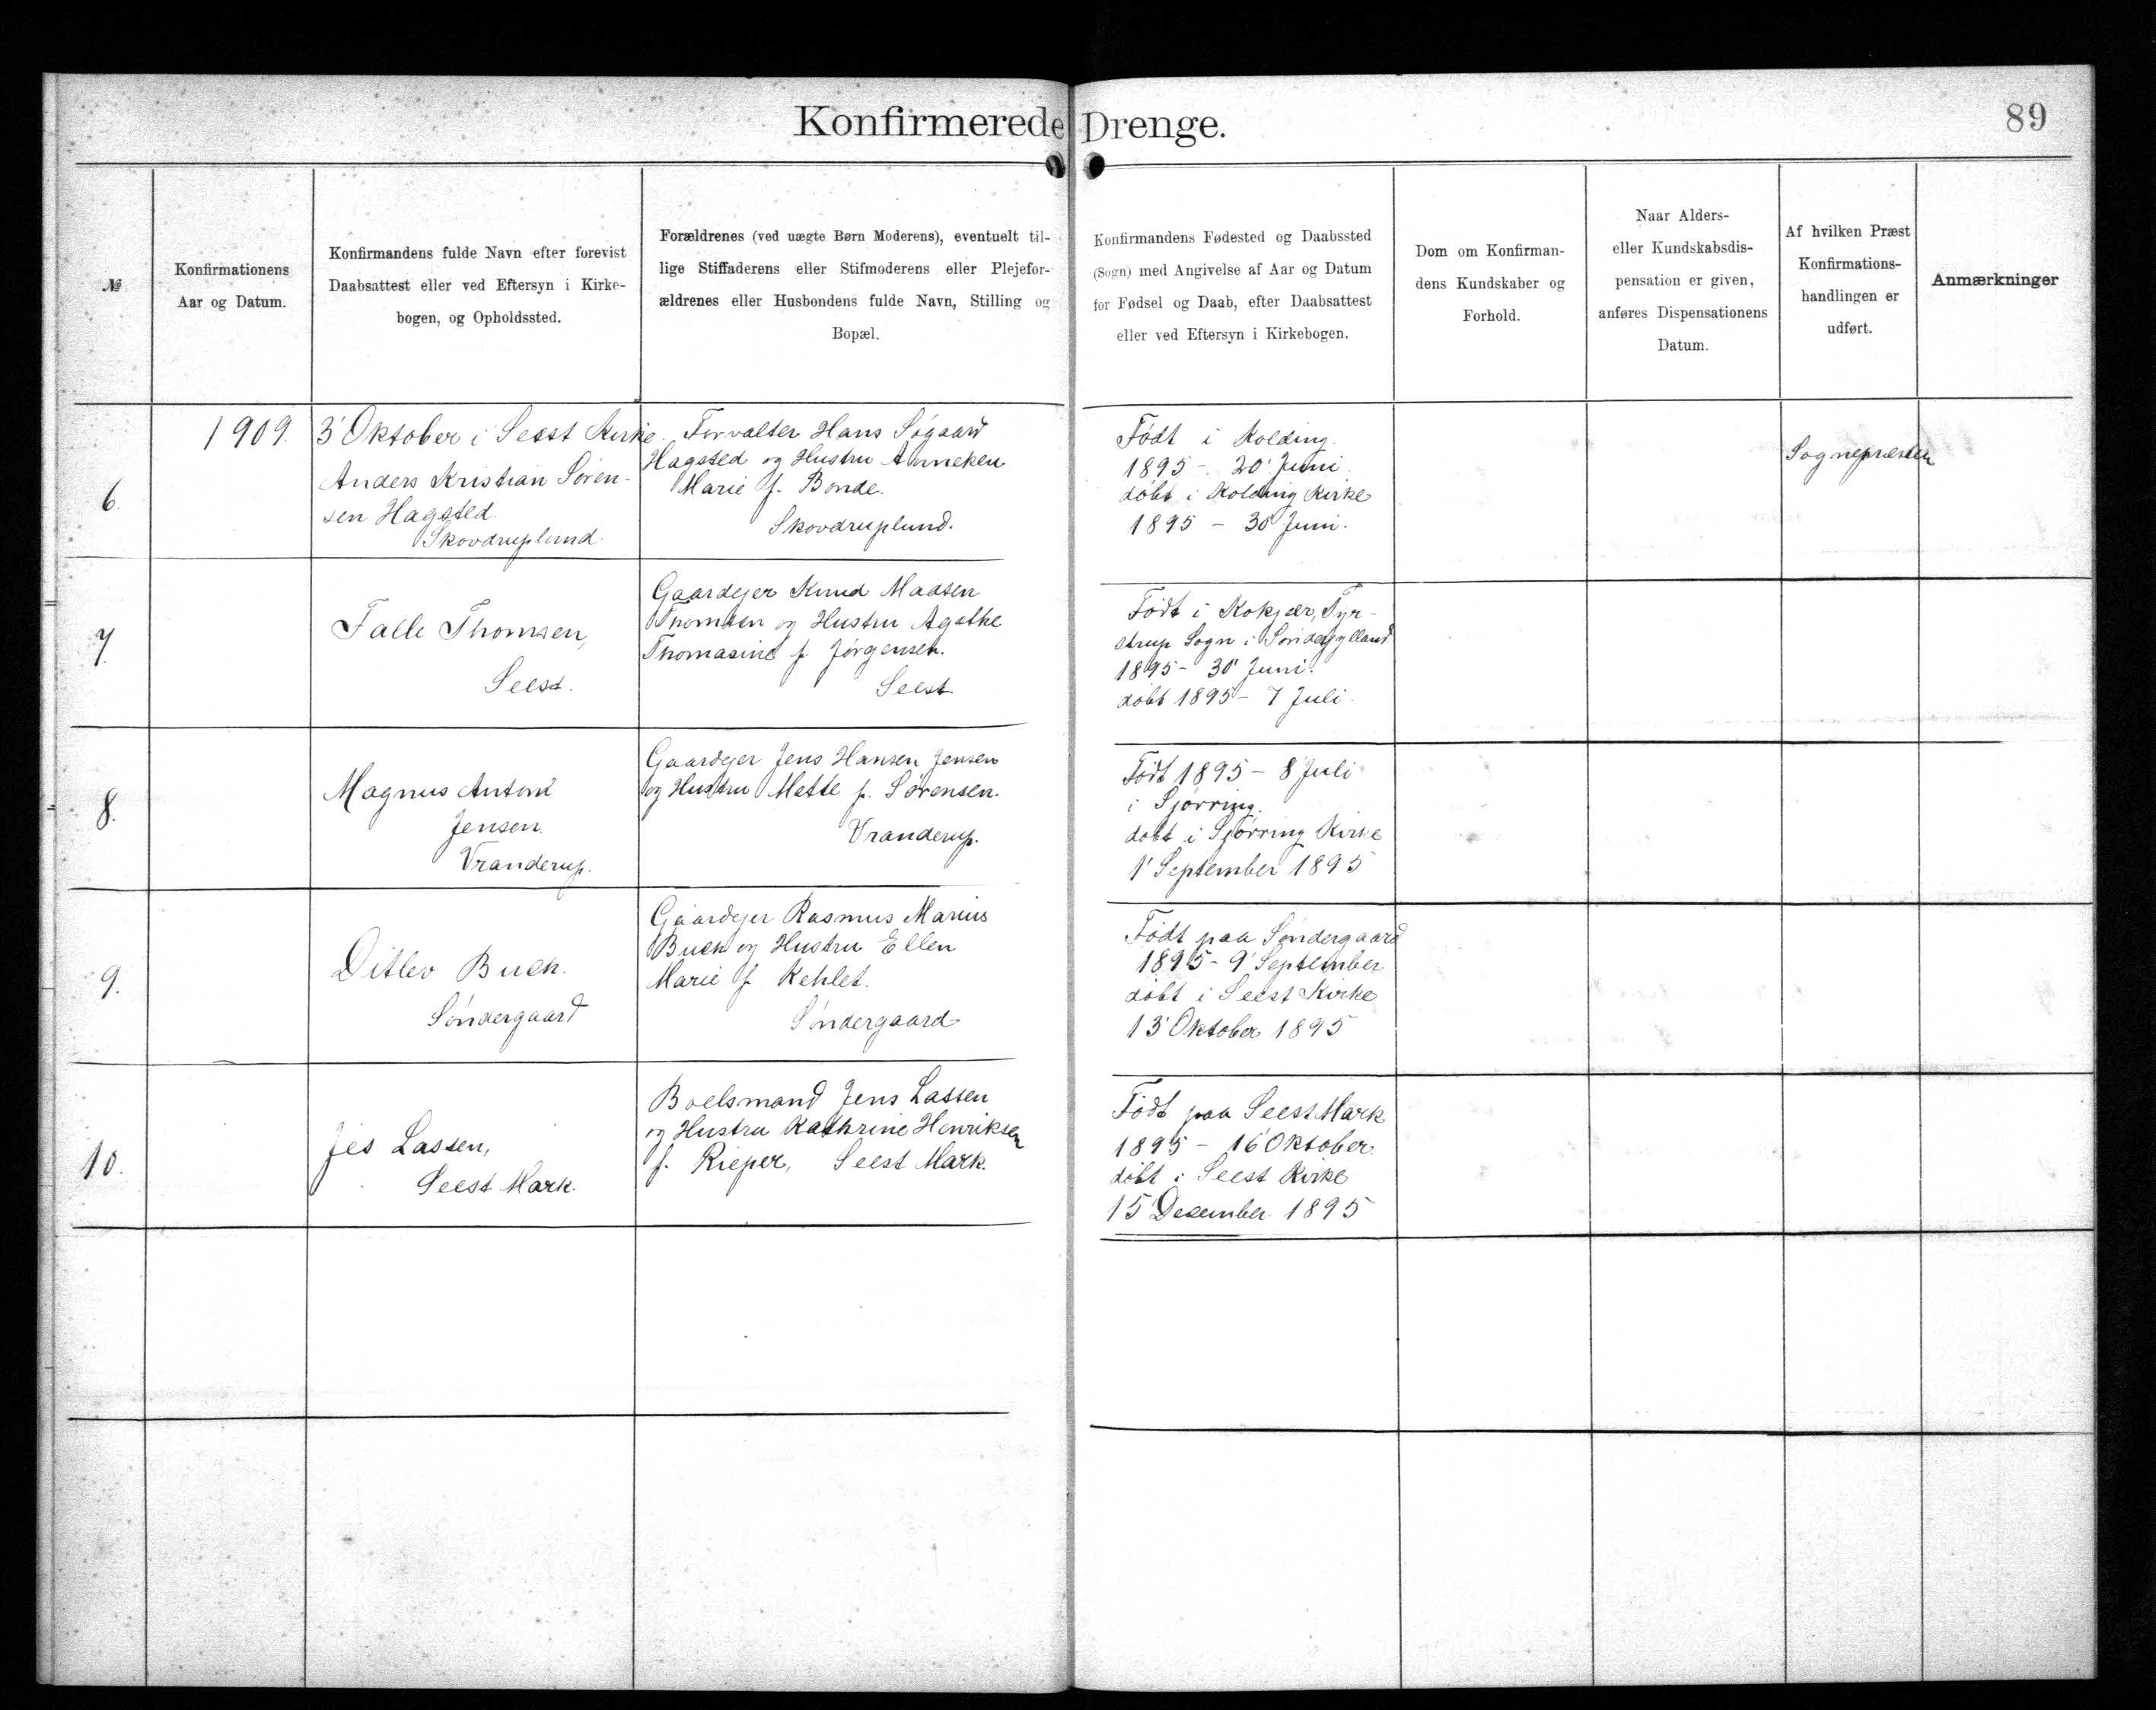 Konfirmerede Drenge.
89
№
Konfirmationens
Aar og Datum.
Konfirmandens fulde Navn efter forevist
Daabsattest eller ved Eftersyn i Kirke-
bogen, og Opholdssted.
Forældrenes (ved uægte Børn Moderens), eventuelt til-
lige Stiffaderens eller Stifmoderens eller Plejefor-
ældrenes eller Husbondens fulde Navn, Stilling og
Bopæl.
Konfirmandens Fødested og Daabssted
(Sogn) med Angivelse af Aar og Datum
for Fødsel og Daab, efter Daabsattest
eller ved Eftersyn i Kirkebogen.
Dom om Konfirman-
dens Kundskaber og
Forhold.
Naar Alders-
eller Kundskabsdis-
pensation er given,
anføres Dispensationens
Datum.
Af hvilken Præst
Konfirmations-
handlingen er
udført.
Anmærkninger
6.
1909.
3' Oktober i Seest Kirke.
Anders Kristian Søren-
sen Hagsted.
Skovdruplund.
Forvalter Hans Søgaard
Hagsted og Hustru Anneken
Marie f. Bonde.
Skovdruplund.
Født i Kolding.
1895 - 20' Juni.
døbt i Kolding Kirke
1895 - 30' Juni.
Sognepræsten
7.
Falle Thomsen,
Seest.
Gaardejer Knud Madsen
Thomsen og Hustru Agathe
Thomasine f. Jørgensen.
Seest.
Født i Kokjær, Tyr-
strup Sogn i Sønderjylland
1895 - 30' Juni.
døbt 1895 - 7 Juli.
8.
Magnus Antoni
Jensen.
Vranderup.
Gaardejer Jens Hansen Jensen
og Hustru Mette f. Sørensen.
Vranderup.
Født 1895 - 8' Juli
i Sjørring.
døbt i Sjørring Kirke
1' September 1895
9.
Ditlev Buch.
Søndergaard
Gaardejer Rasmus Marius
Buch og Hustru Ellen
Marie f. Kehlet.
Søndergaard
Født paa Søndergaard
1895 - 9' September
døbt i Seest Kirke
13' Oktober 1895
10.
Jes Lassen,
Seest Mark.
Boelsmand Jens Lassen
og Hustru Kathrine Henriksen
f. Rieper, Seest Mark.
Født paa Seest Mark
1895 - 16' Oktober
døbt i Seest Kirke
15' December 1895